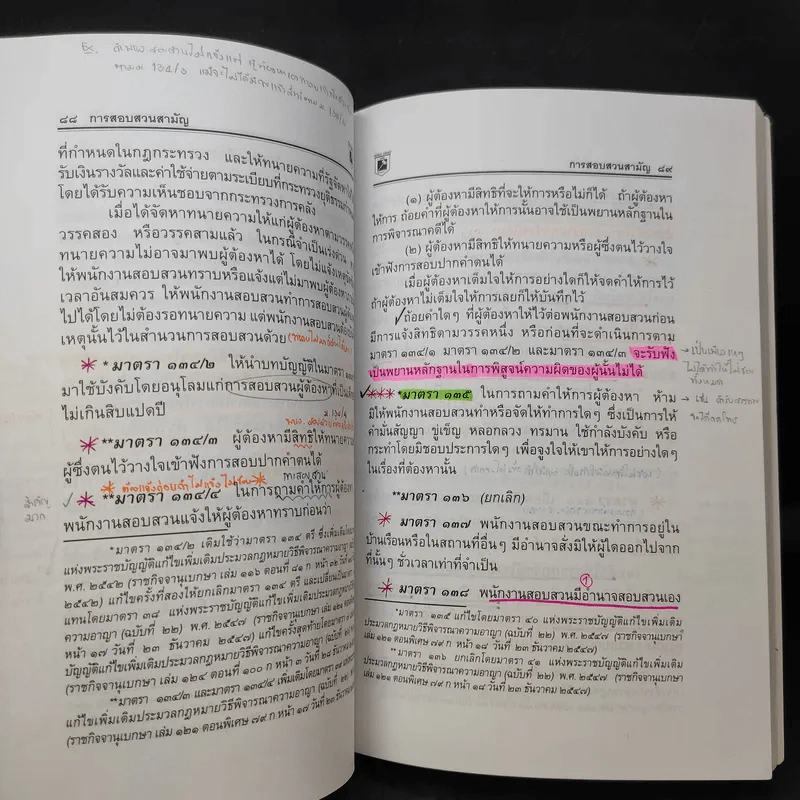 ๘๘ การสอบสวนสามัญ
ที่กำหนดในกฎกระทรวง และให้ทนายความที่รัฐจัดหาให้
รับเงินรางวัลและค่าใช้จ่ายตามระเบียบที่กระทรวงยุติธรรมกำหนด
โดยได้รับความเห็นชอบจากกระทรวงการคลัง
เมื่อได้จัดหาทนายความให้แก่ผู้ต้องหาตามวรรคหนึ่ง
วรรคสอง หรือวรรคสามแล้ว ในกรณีจำเป็นเร่งด่วน หาก
ทนายความไม่อาจมาพบผู้ต้องหาได้ โดยไม่แจ้งเหตุขัดข้อง
ให้พนักงานสอบสวนทราบหรือแจ้งแต่ไม่มาพบผู้ต้องหาภายใน
เวลาอันสมควร ให้พนักงานสอบสวนทำการสอบสวนผู้ต้องหา
ไปได้โดยไม่ต้องรอทนายความ แต่พนักงานสอบสวนต้องบันทึก
เหตุนั้นไว้ในสำนวนการสอบสวนด้วย
*มาตรา ๑๓๔/๒ ให้นำบทบัญญัติในมาตรา
มาใช้บังคับโดยอนุโลมแก่การสอบสวนผู้ต้องหาที่เป็นเด็ก
ไม่เกินสิบแปดปี
**มาตรา ๑๓๔/๓ ผู้ต้องหามีสิทธิให้ทนายความ
ผู้ซึ่งตนไว้วางใจเข้าฟังการสอบปากคำตนได้
**มาตรา ๑๓๔/๔ ในการถามคำให้การผู้ต้องหา
สำคัญ
มาก
พนักงานสอบสวนแจ้งให้ผู้ต้องหาทราบก่อนว่า
*มาตรา ๑๓๔/๒ เดิมใช้ว่ามาตรา ๑๓๔ ตรี ซึ่งเพิ่ม
แห่งพระราชบัญญัติแก้ไขเพิ่มเติมประมวลกฎหมายวิธีพิจารณาความอาญา
พ.ศ. ๒๕๔๒ (ราชกิจจานุเบกษา เล่ม ๑๑๖ ตอนที่ ๘๑ ก
๒๕๔๒) แก้ไขครั้งที่สองให้ยกเลิกมาตรา ๑๓๔ ตรี และเปลี่ยนเป็น
แทนโดยมาตรา ๓๘ แห่งพระราชบัญญัติแก้ไขเพิ่มเติมประมวลกฎหมาย
ความอาญา (ฉบับที่ ๒๒) พ.ศ. ๒๕๔๗ (ราชกิจจานุเบกษา เล่ม ๑๒๑
หน้า ๑๗ วันที่ ๒๓ ธันวาคม ๒๕๔๗) แก้ไขครั้งสุดท้ายโดย
บัญญัติแก้ไขเพิ่มเติมประมวลกฎหมายวิธีพิจารณาความอาญา
(ราชกิจจานุเบกษา เล่ม ๑๒๔ ตอนที่ ๑๐๐ ก หน้า ๓ วันที่ ๒๘ ธันวาคม
**มาตรา ๑๓๔/๓ และมาตรา ๑๓๔/๔ เพิ่มเติมโดยมาตรา
แก้ไขเพิ่มเติมประมวลกฎหมายวิธีพิจารณาความอาญา (ฉบับที่ ๒๒) พ.ศ. ๒๕๔๗
(ราชกิจจานุเบกษา เล่ม ๑๒๑ ตอนพิเศษ ๗๙ ก หน้า ๑๗ วันที่ ๒๓ ธันวาคม
การสอบสวนสามัญ ๘๙
(๑) ผู้ต้องหามีสิทธิที่จะให้การหรือไม่ก็ได้ ถ้าผู้ต้องหา
ให้การ ถ้อยคำที่ผู้ต้องหาให้การนั้นอาจใช้เป็นพยานหลักฐานใน
การพิจารณาคดีได้
(๒) ผู้ต้องหามีสิทธิให้ทนายความหรือผู้ซึ่งตนไว้วางใจ
เข้าฟังการสอบปากคำตนได้
เมื่อผู้ต้องหาเต็มใจให้การอย่างใดก็ให้จดคำให้การไว้
ถ้าผู้ต้องหาไม่เต็มใจให้การเลยก็ให้บันทึกไว้
ถ้อยคำใดๆ ที่ผู้ต้องหาให้ไว้ต่อพนักงานสอบสวนก่อน
มีการแจ้งสิทธิตามวรรคหนึ่ง หรือก่อนที่จะดำเนินการตาม
มาตรา ๑๓๔/๑ มาตรา ๑๓๔/๒ และมาตรา ๑๓๔/๓ จะรับฟัง
เป็นพยานหลักฐานในการพิสูจน์ความผิดของผู้นั้นไม่ได้
*มาตรา ๑๓๕ ในการถามคำให้การผู้ต้องหา ห้าม
มิให้พนักงานสอบสวนทำหรือจัดให้ทำการใดๆ ซึ่งเป็นการให้
คำมั่นสัญญา ขู่เข็ญ หลอกลวง ทรมาน ใช้กำลังบังคับ หรือ
กระทำโดยมิชอบประการใดๆ เพื่อจูงใจให้เขาให้การอย่างใดๆ
ในเรื่องที่ต้องหานั้น
**มาตรา ๑๓๖ (ยกเลิก)
มาตรา ๑๓๗ พนักงานสอบสวนขณะทำการอยู่ใน
บ้านเรือนหรือในสถานที่อื่นๆ มีอำนาจสั่งมิให้ผู้ใดออกไปจาก
ที่นั้นๆ ชั่วเวลาเท่าที่จำเป็น
มาตรา ๑๓๘ พนักงานสอบสวนมีอำนาจสอบสวนเอง
*มาตรา ๑๓๕ แก้ไขโดยมาตรา ๔๐ แห่งพระราชบัญญัติแก้ไขเพิ่มเติม
ประมวลกฎหมายวิธีพิจารณาความอาญา (ฉบับที่ ๒๒) พ.ศ. ๒๕๔๗ (ราชกิจจานุเบกษา
เล่ม ๑๒๑ ตอนพิเศษ ๗๙ ก หน้า ๑๘ วันที่ ๒๓ ธันวาคม ๒๕๔๗)
**มาตรา ๑๓๖ ยกเลิกโดยมาตรา ๔๑ แห่งพระราชบัญญัติแก้ไขเพิ่มเติม
ประมวลกฎหมายวิธีพิจารณาความอาญา (ฉบับที่ ๒๒) พ.ศ. ๒๕๔๗ (ราชกิจจานุเบกษา
เล่ม ๑๒๑ ตอนพิเศษ ๗๙ ก หน้า ๑๘ วันที่ ๒๓ ธันวาคม ๒๕๔๗)